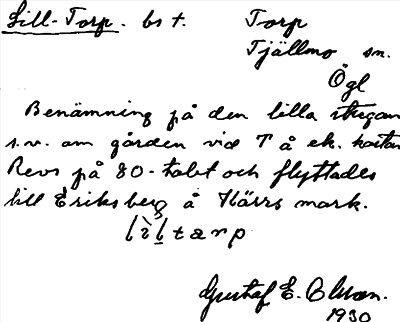 Lill-Torp. bs t. Torp
Tjällmo sn.
Ögl
Benämning på den lilla stugan
s.v. om gården vid T å ek. kartan
Revs på 80-talet och flyttades
till Eriksberg å Härrs mark.
Gustaf E. Olsson.
1930